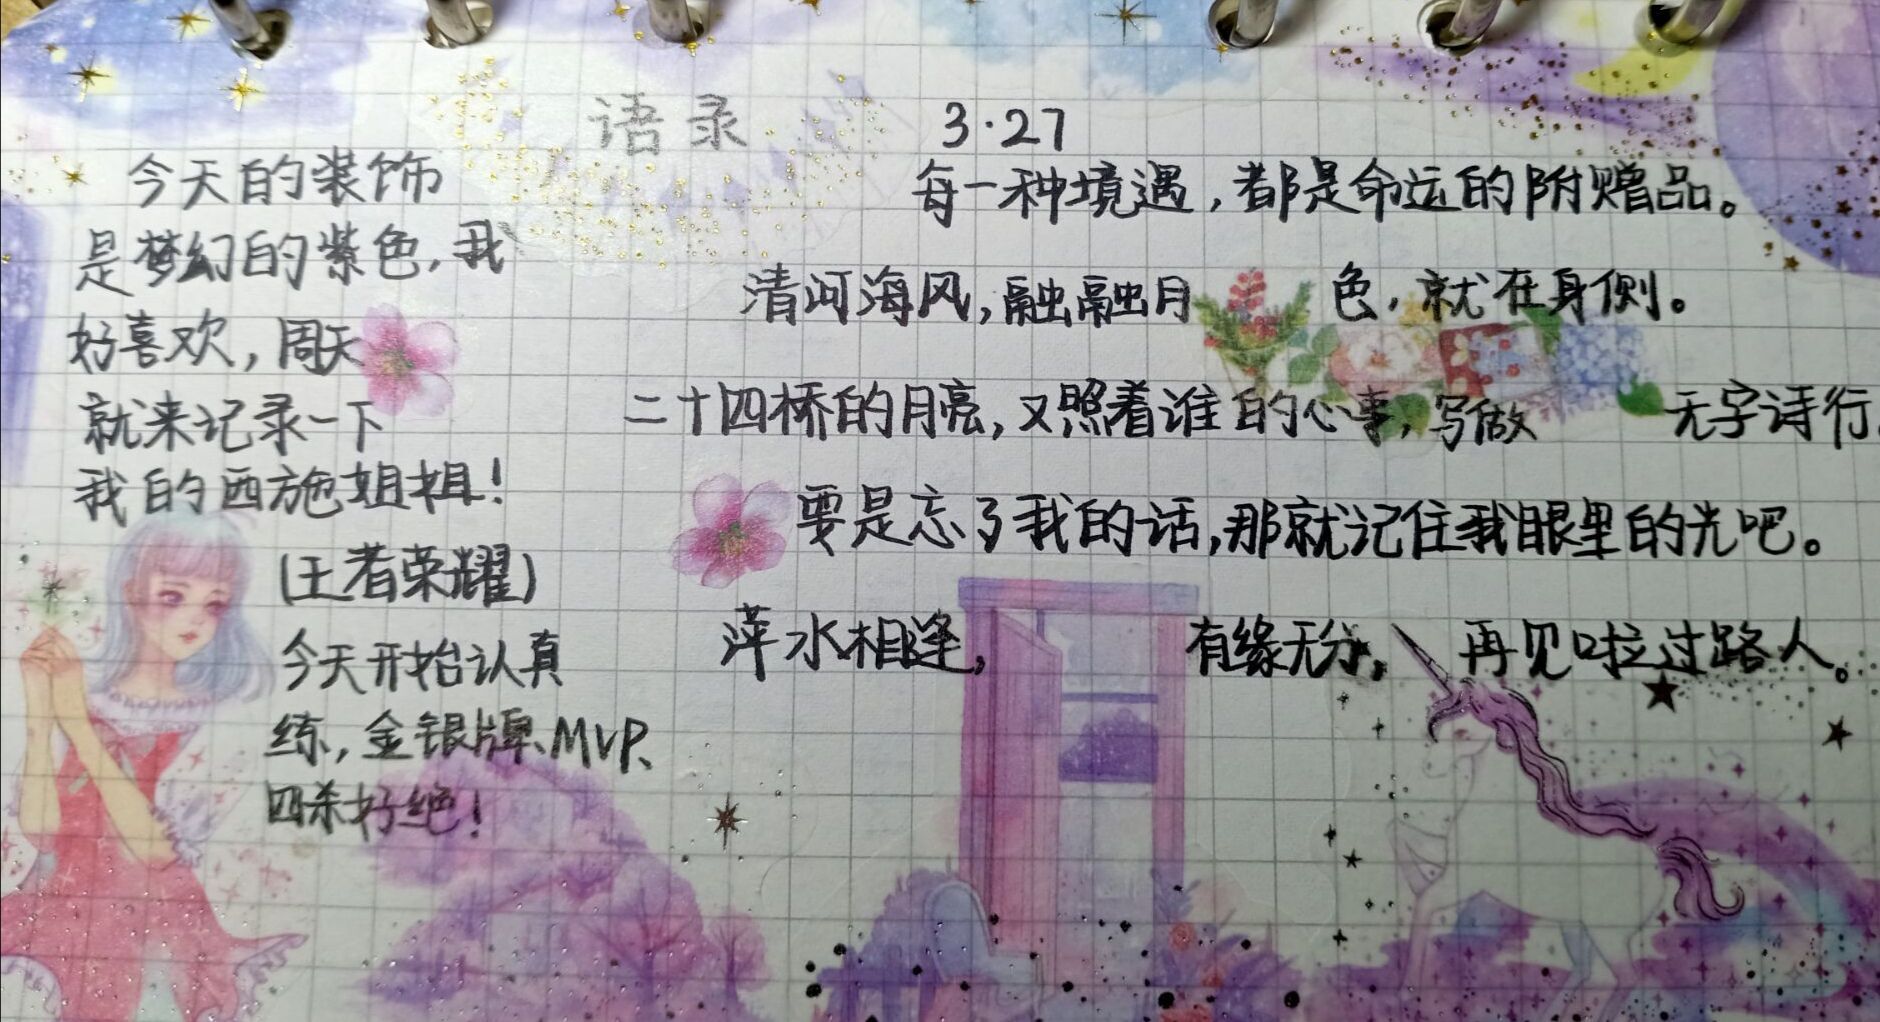 语录 3.27
今天的装饰
是梦幻的紫色,我
好喜欢,周天
就来记录一下
我的西施姐姐!
(王者荣耀)
今天开始认真
练,金银牌、MVP、
四杀好绝!
每一种境遇,都是命运的附赠品。
清河海风,融融月色,就在身侧。
二十四桥的月亮,又照着谁的心事,写做无字诗行。
要是忘了我的话,那就记住我眼里的光吧。
萍水相逢,有缘无分,再见啦过路人。